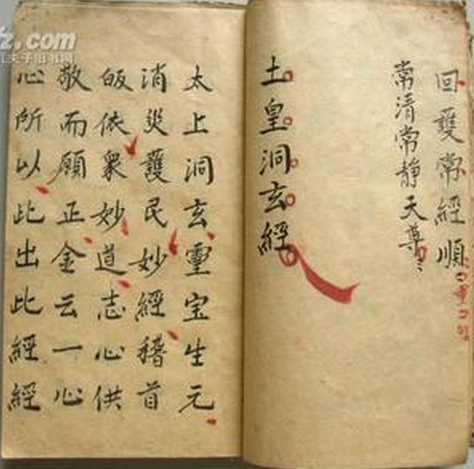 回護常經順
常清常靜天尊〻
土皇洞玄經
太上洞玄靈宝生元
消災護民妙經稽首
皈依衆妙道志心供
敬而願正金云一心
心所以此出此經經
fz.com
夫子旧书网